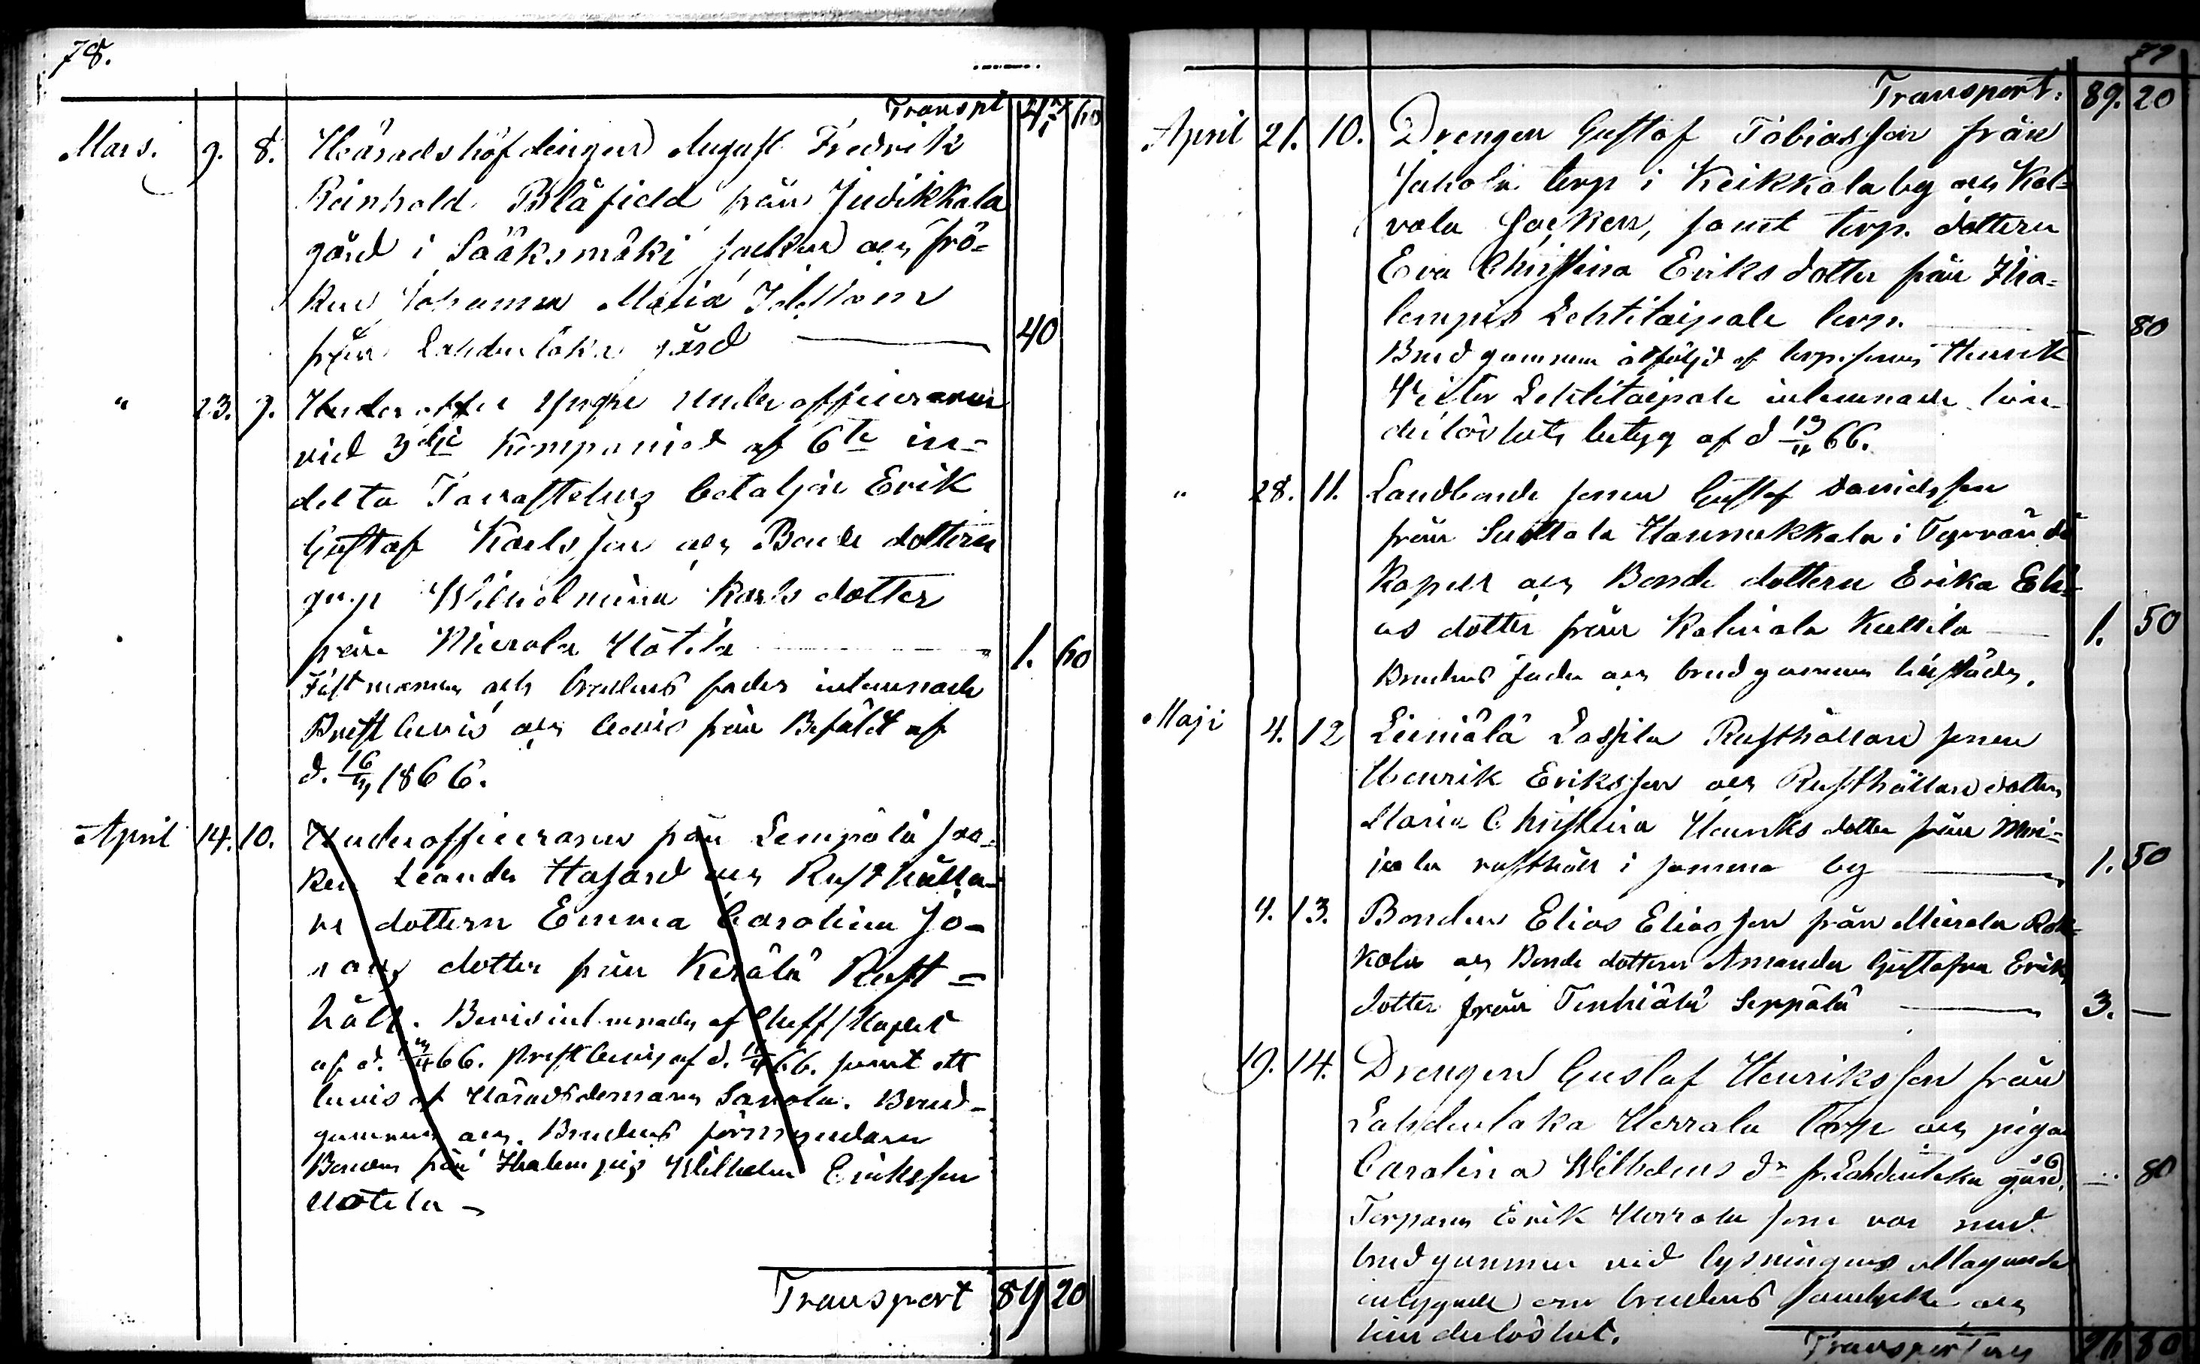 78.
Transpt 47 60
Mars. 9. 8. Häradshöfdingen August Fredrik
Reinhold Blåfield från Jutikkala
gård i Sääksmäki socken och Frö-
ken Johanna Maria
från Lahdentaka gård 40
" 23. 9. yngre underofficeraren
vid 3dje Kompaniet af 6te in-
delta Tavastehus bataljon Erik
Gustaf Karlsson och Bonde dottern
pig. Wilhelmina Karlsdotter
från Mierola Uotila 1. 60
Fästmannen och brudens fader inlemnade
Prestbevis och bevis från Befälet af
d. 16 1866.
April 14. 10. Underofficeraren från Lempälä soc-
ken Leander Hasard och Rusthålla-
re dottern Emma Carolina Jo-
hans dotter från Kerälä Rust-
håll. Bevis inlemnades af Cheff/Kapet
af d. 66. Prestbevis af d. 66. samt ett
bevis af Häradsdomaren Sawola. Brud-
gummen och Brudens förmyndaren
Bonden från Ihalempis Wilhelm Eriksson
Uotila
Transport 89 20
79
Transport. 89. 20
April 21. 10. Drengen Gustaf Tobiasson från
torp i Keikkala by och Kal-
vola Socken, samt torp. dottern
Eva Christina Eriksdotter från Iha-
lempis Lehtitaipale torp. 80
Brudgummen åtföljd af torp. sonen Henrik
Lehtitaipale inlemnade hin-
derlöshets betyg af d 19 66.
" 28. 11. Landbonde sonen Gustaf Davidsson
från Suttala Hannukkala i Tyrväntö
Kapell och Bonde dottern Erika Eli-
as dotter från Kalvola Kullila 1. 50
Brudens fader och brudgummen tillstädes.
Maji 4. 12 Leiniälä Lassila Rusthållare sonen
Henrik Eriksson och Rusthållare dottern
Maria Christina Henriks dotter från Mni-
jala rusthåll i samma by 1. 50
4. 13. Bonden Elias Eliasson från Mierola Rok-
kola och Bonde dottern Amanda Gustafva Eriks
dotter från Tenhiälä Seppälä 3. —
19. 14. Drengen Gustaf Henriksson från
Lahdentaka Herrala Torp och pigan
Carolina Wilhelms dr fr. Lahdentaka gård. —. 80
Torparen Erik Herrala som var med
brudgummen vid lysningens uttagande
intygade om brudens samtycke och
hinderlöshet.
Transporteras 96 80